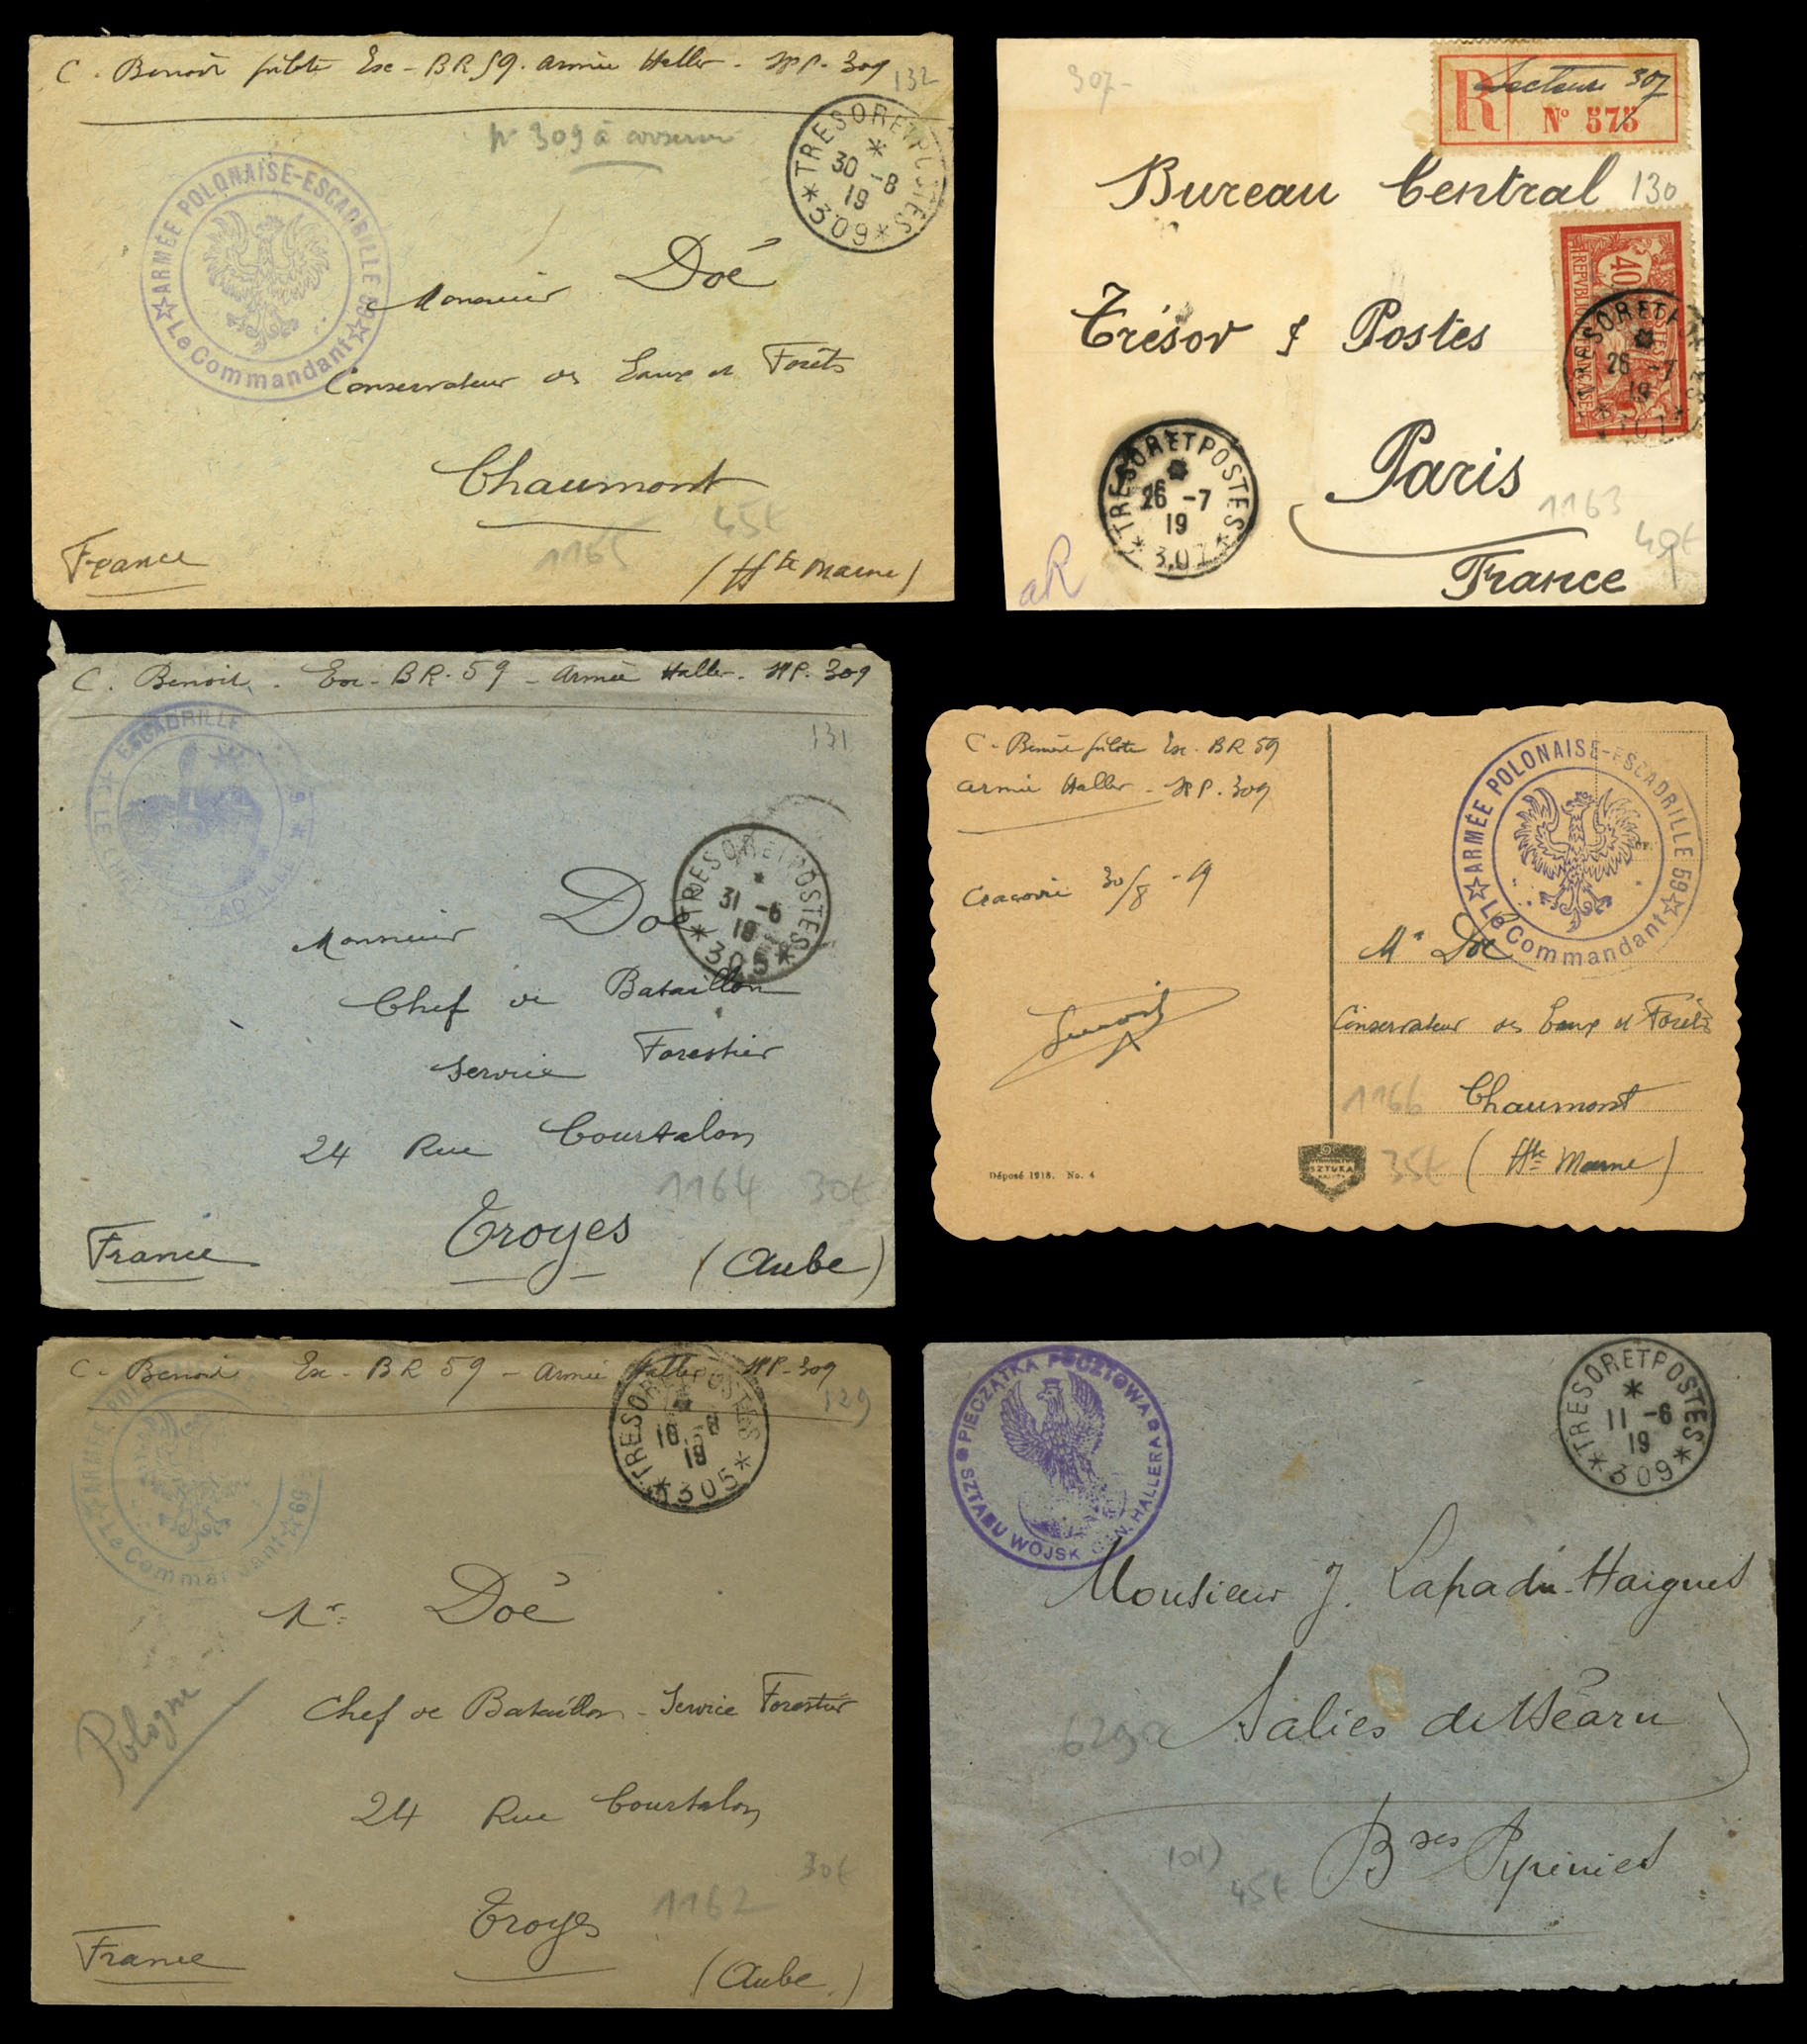 C. Benoit pilote Esc - BR 59. Armée Haller - SP. 309
132
Nº 309 à
TRESOR ET POSTES
30 -8
19
*309*
ARMÉE POLONAISE-ESCADRILLE 59
Le Commandant
Monsieur Doé
Conservateur des Eaux et Forêts
Chaumont
45€
1165
France
(Hte Marne)
307-
R
Secteur 307
Nº 575
Bureau Central
130
40
Trésor & Postes
TRESOR ET
26 -7
19
Paris
TRESOR ET POSTES
26 -7
19
307
1163
aR
France
C. Benoit - Esc - BR. 59 - Armée Haller - SP. 309
131
ESCADRILLE
TRESOR ET POSTES
31 -6
19
*305*
Monsieur Doé
Chef de Bataillon
Service Forestier
24 Rue Courtalon
1164 30€
Troyes
France
(Aube)
C. Benoit pilote Esc. BR 59
Armée Haller - SP. 309
Cracovie 30/8 - 19
Benoit
Déposé 1918. No. 4
SZTUKA
ARMÉE POLONAISE-ESCADRILLE 59
Le Commandant
Mr Doé
Conservateur des Eaux et Forêts
1166
Chaumont
35€
(Hte Marne)
C. Benoit Esc - BR 59 - Armée Haller SP-309
129
ARMÉE
Le Comman
TRESOR ET POSTES
18 -8
19
*305*
Mr Doé
Pologne
Chef de Bataillon - Service Forestier
24 Rue Courtalon
30€
1162
Troyes
France
(Aube.)
PIECZĄTKA POCZTOWA
SZTABU WOJSK GEN. HALLERA
TRESOR ET POSTES
11 -6
19
*309*
Monsieur J.
Salies de Béarn
(01)
45€
Bses Pyrénées